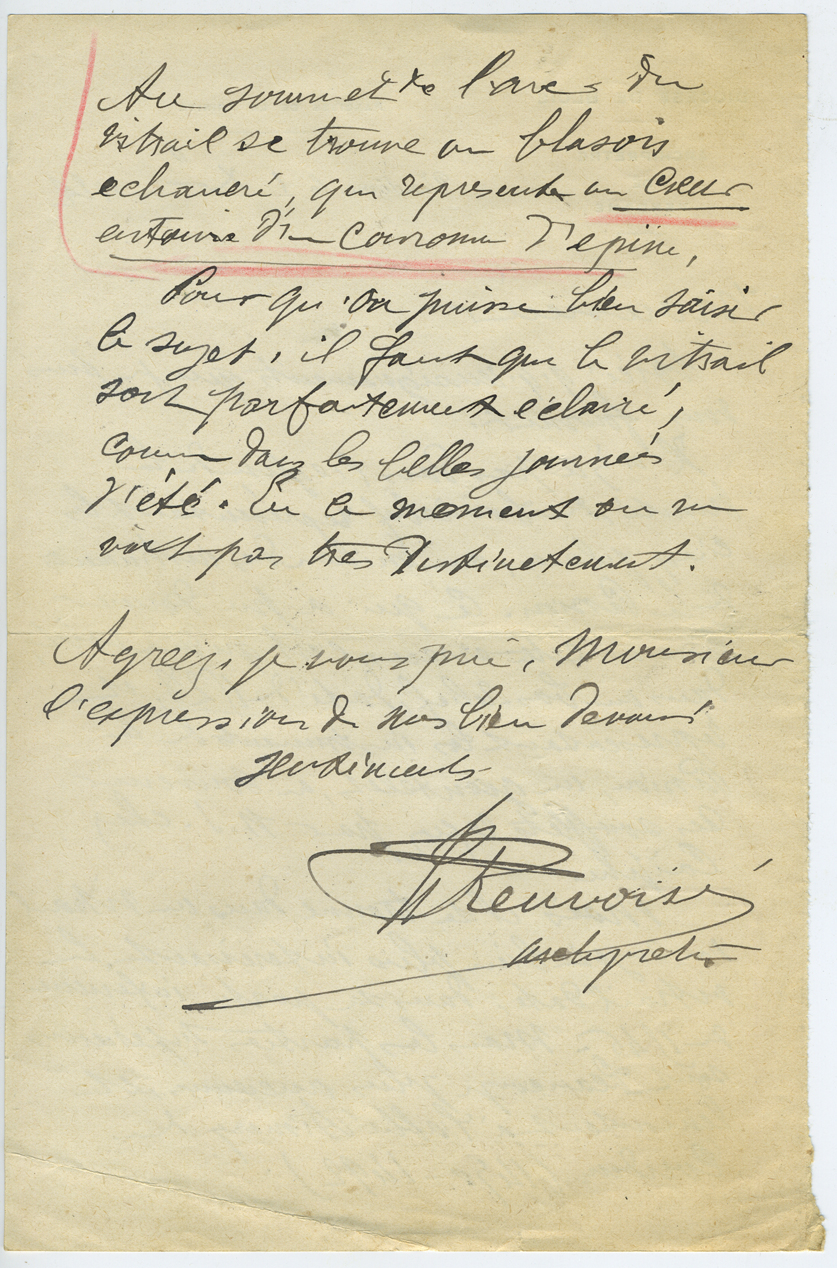 Au sommet de l'arc du
vitrail se trouve un blason
echancré, qui represente un Cœur
entouré d'une couronne d'epine,
Pour qu'on puisse bien saisir
le sujet, il faut que le vitrail
soit parfaitement éclairé,
comme dans les belles journées
d'été. En ce moment on ne
voit pas tres distinctement.
Agréez, je vous prie, Monsieur
l'expression de mes bien devoués
sentiments
Renvoisé